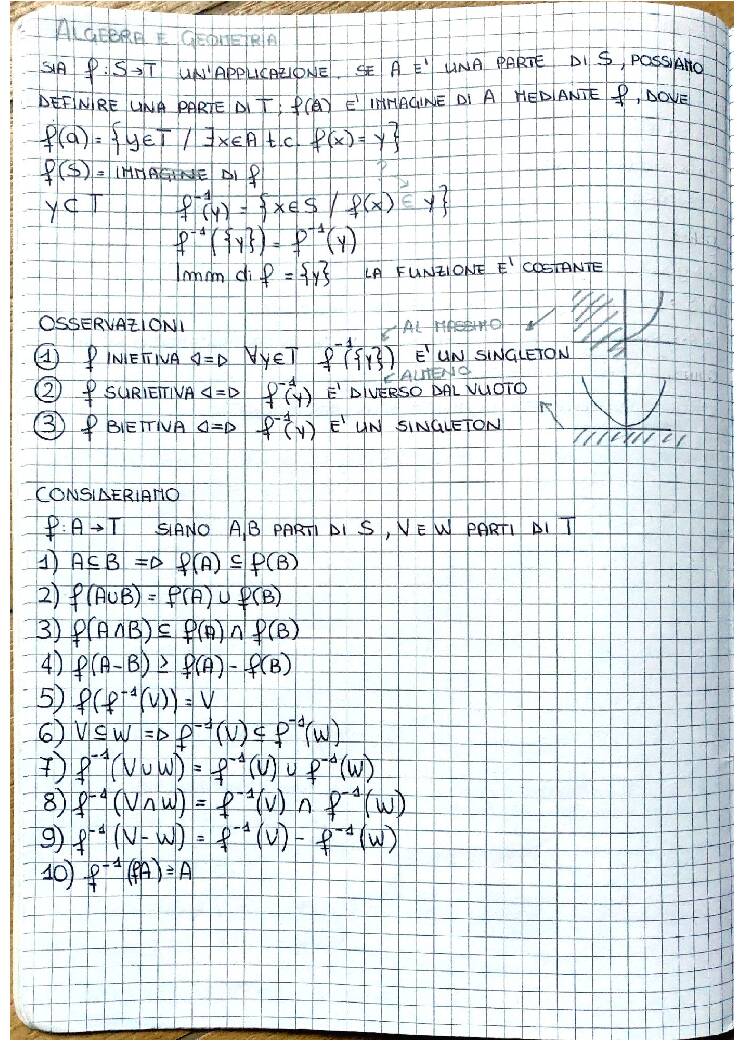 ALGEBRA E GEOMETRIA
SIA f: S→T UN'APPLICAZIONE. SE A E' UNA PARTE DI S, POSSIAMO
DEFINIRE UNA PARTE DI T; f(A) E' IMMAGINE DI A MEDIANTE f, DOVE
f(a) = {y∈T / ∃x∈A t.c. f(x) = y}
f(S) = IMMAGINE DI f
?
Y⊂T f⁻¹(y) = {x∈S / f(x) ∈ y}
f⁻¹({y}) = f⁻¹(y)
Imm di f = {y} LA FUNZIONE E' COSTANTE
OSSERVAZIONI
AL MASSIMO
① f INIETIVA <=> ∀y∈T f⁻¹({y}) E' UN SINGLETON
ALMENO
② f SURIETTIVA <=> f⁻¹(y) E' DIVERSO DAL VUOTO
③ f BIETTIVA <=> f⁻¹(y) E' UN SINGLETON
CONSIDERIAMO
f: A→T SIANO A,B PARTI DI S, V E W PARTI DI T
1) A⊆B => f(A) ⊆ f(B)
2) f(A∪B) = f(A) ∪ f(B)
3) f(A∩B) ⊆ f(A) ∩ f(B)
4) f(A-B) ⊇ f(A) - f(B)
5) f(f⁻¹(V)) = V
6) V⊆W => f⁻¹(V) ⊆ f⁻¹(W)
7) f⁻¹(V∪W) = f⁻¹(V) ∪ f⁻¹(W)
8) f⁻¹(V∩W) = f⁻¹(V) ∩ f⁻¹(W)
9) f⁻¹(V-W) = f⁻¹(V) - f⁻¹(W)
10) f⁻¹(fA) ⊇ A